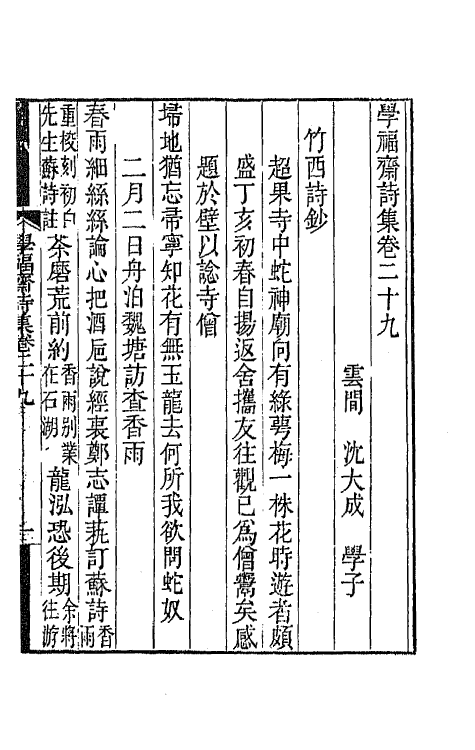 學福齋詩集卷二十九
雲間　沈大成　學子
竹西詩鈔
超果寺中蛇神廟向有綠萼梅一株花時遊者頗
盛丁亥初春自揚返舍攜友往觀已爲僧鬻矣感
題於壁以諗寺僧
埽地猶忘帚寧知花有無玉龍去何所我欲問蛇奴
二月二日舟泊魏塘訪査香雨
春雨細絲絲論心把酒巵說經裒鄭志譚蓺訂蘇詩香雨
重校刻初白
先生蘇詩註茶磨荒前約香雨別業
在石湖龍泓恐後期余將
往游
學福齋詩集卷二十九
一